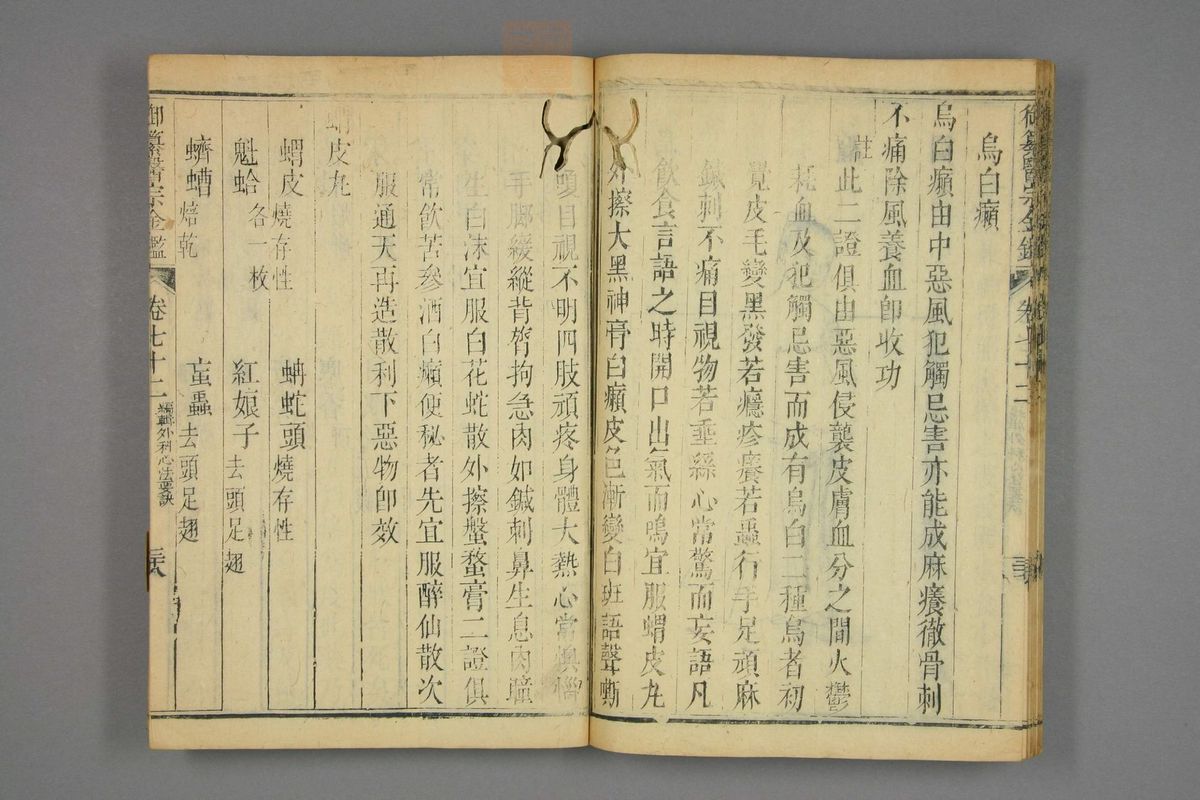 烏白癩
烏白癩由中惡風犯觸忌害亦能成麻癢徹骨刺
不痛除風養血卽收功
註此二證俱由惡風侵襲皮膚血分之間火鬱
耗血及犯觸忌害而成有烏白二種烏者初
覺皮毛變黑發若癮疹癢若蟲行手足頑麻
鍼刺不痛目視物若垂絲心常驚而妄語凡
飮食言語之時開口出氣而鳴宜服蝟皮丸
外擦大黑神膏白癩皮色漸變白斑語聲嘶
嗄目視不明四肢頑疼身體大熱心常懊憹
手脚緩縱背膂拘急肉如鍼刺鼻生息肉瞳
生白沫宜服白花蛇散外擦斑蝥膏二證俱
常飮苦參酒白癩便秘者先宜服醉仙散次
服通天再造散利下惡物卽效
蝟皮丸
蝟皮燒存性 蚺蛇頭燒存性
魁蛤各一枚 紅娘子去頭足翅
蠐螬焙乾 䖟蟲去頭足翅
御纂醫宗金鑑 卷七十二 編輯外科心法要訣